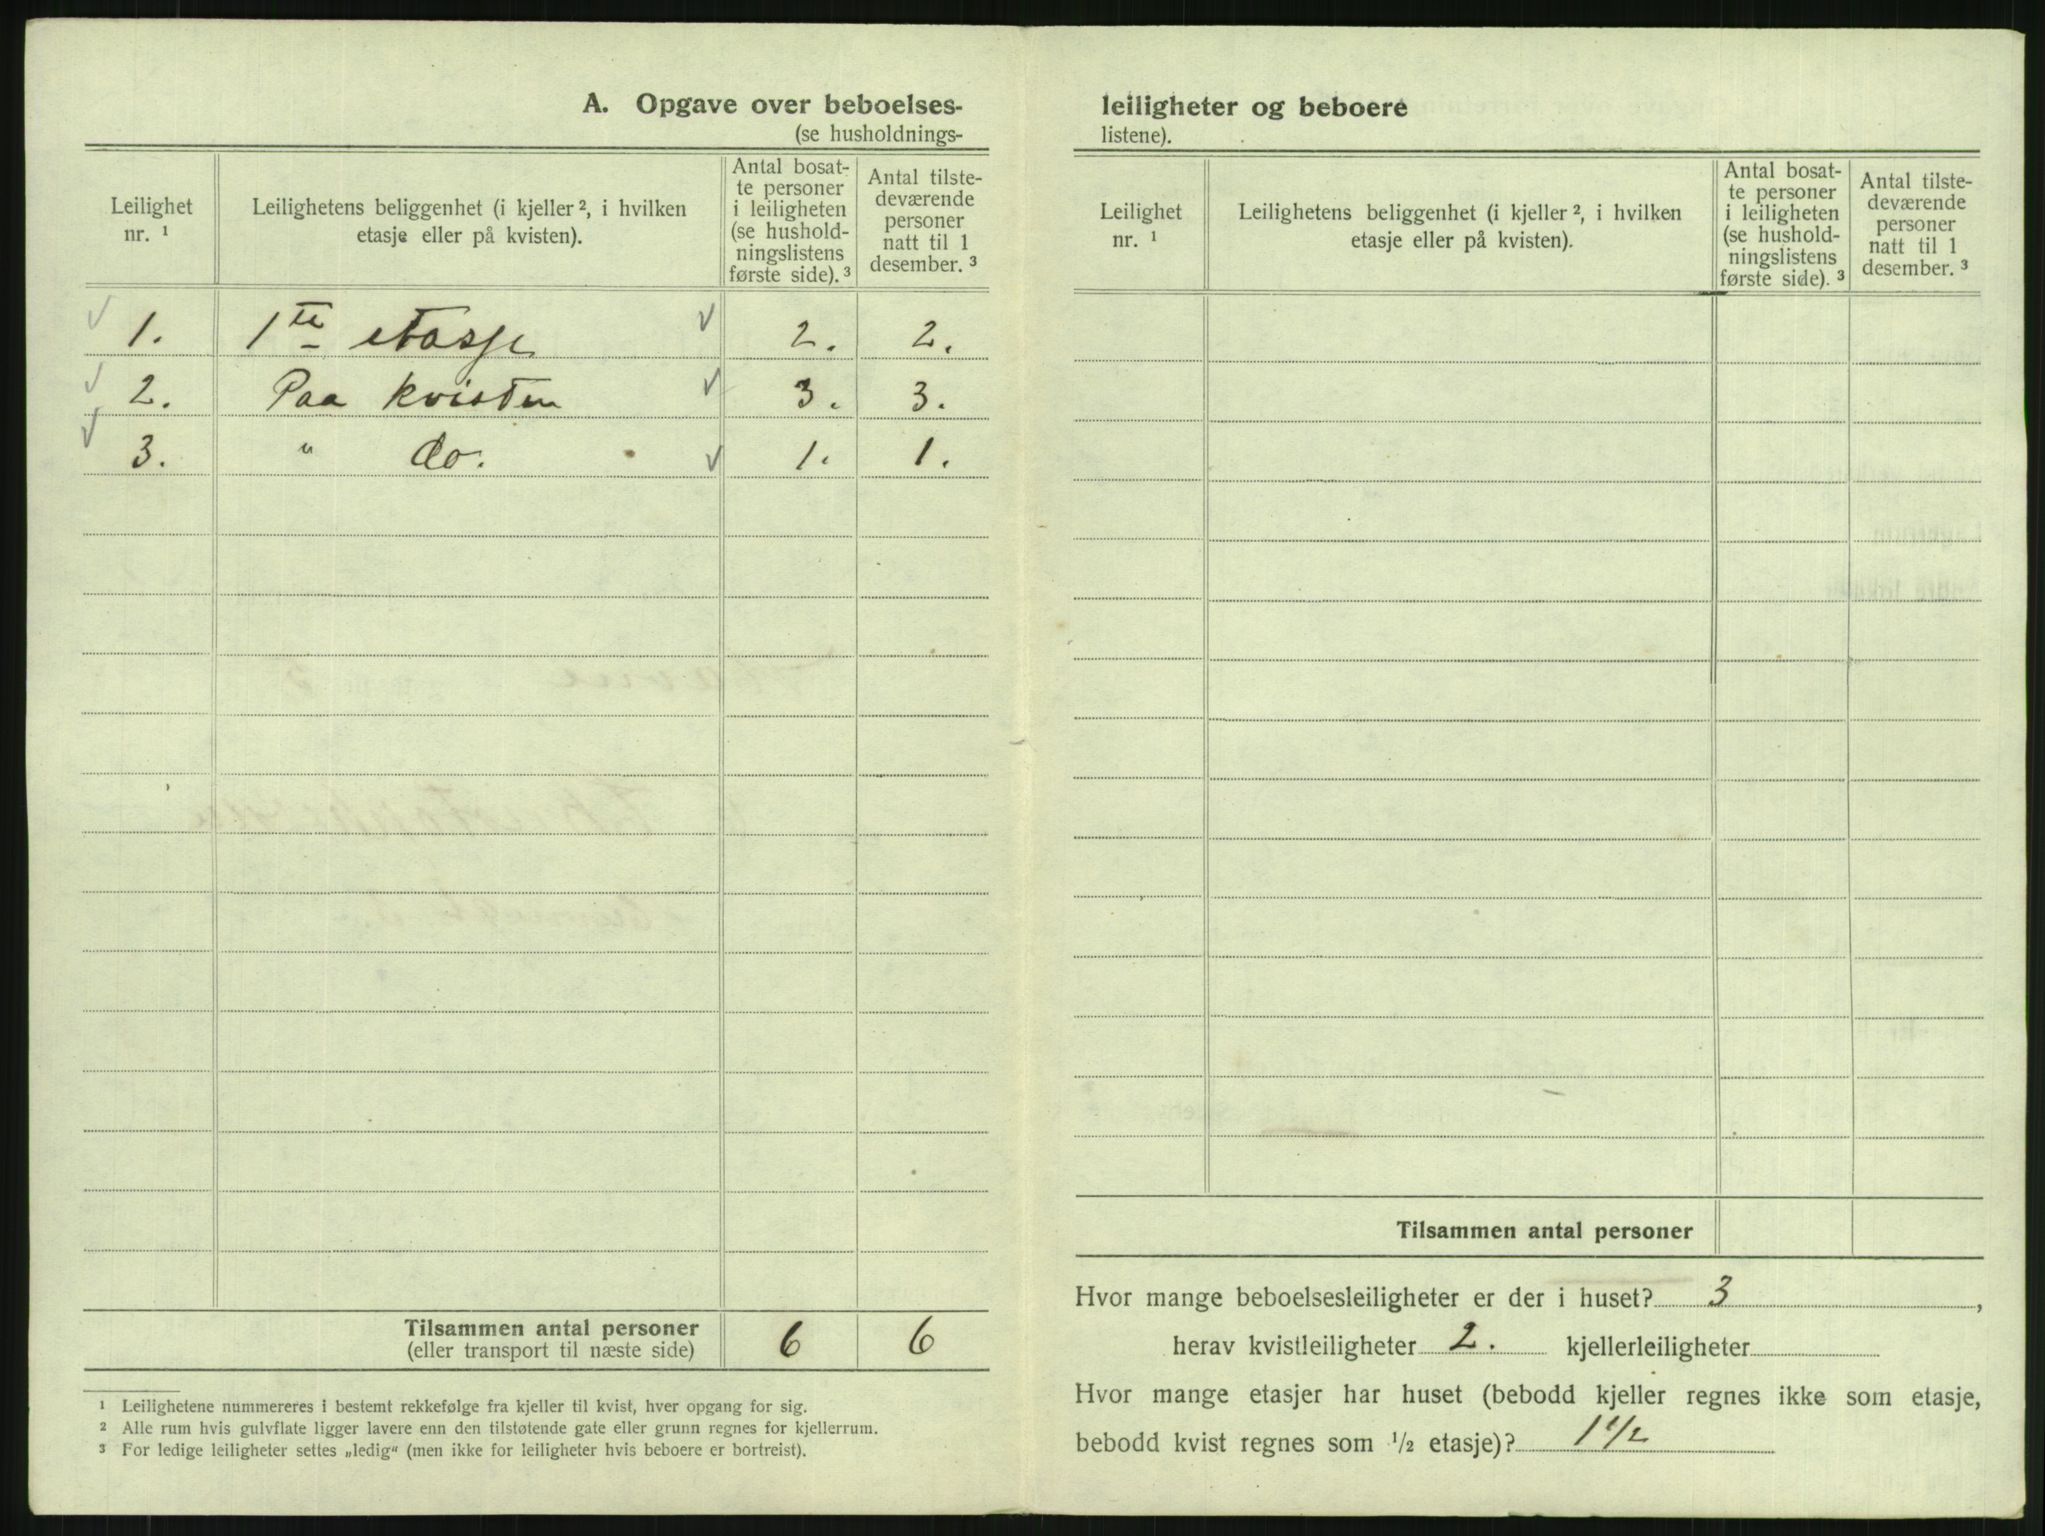 A. Opgave over beboelses-
(se husholdnings-
Leilighet nr. ¹
Leilighetens beliggenhet (i kjeller ², i hvilken etasje eller på kvisten).
Antal bosat-
te personer
i leiligheten
(se hushold-
ningslistens
første side). ³
Antal tilste-
deværende
personer
natt til 1
desember. ³
1. 1te etasje 2. 2.
2. Paa kvisten 3. 3.
3. " do. 1. 1.
Tilsammen antal personer 6 6
(eller transport til næste side)
¹ Leilighetene nummereres i bestemt rekkefølge fra kjeller til kvist, hver opgang for sig.
² Alle rum hvis gulvflate ligger lavere enn den tilstøtende gate eller grunn regnes for kjellerrum.
³ For ledige leiligheter settes „ledig" (men ikke for leiligheter hvis beboere er bortreist).
leiligheter og beboere
listene).
Leilighet nr. ¹
Leilighetens beliggenhet (i kjeller ², i hvilken etasje eller på kvisten).
Antal bosat-
te personer
i leiligheten
(se hushold-
ningslistens
første side). ³
Antal tilste-
deværende
personer
natt til 1
desember. ³
Tilsammen antal personer
Hvor mange beboelsesleiligheter er der i huset? 3,
herav kvistleiligheter 2. kjellerleiligheter
Hvor mange etasjer har huset (bebodd kjeller regnes ikke som etasje,
bebodd kvist regnes som ½ etasje)? 1½